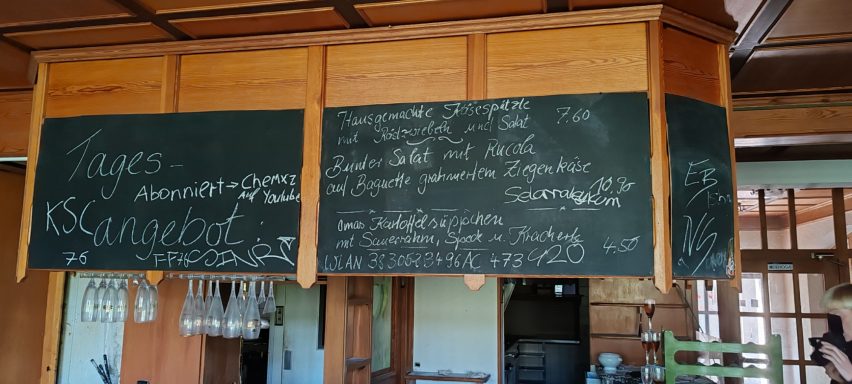 Tages-
Abonniert → Chemxz
Auf Youtube
KSC angebot
76
FF76
Hausgemachte Käsespätzle 7.60
mit Röstzwiebeln und Salat
Bunter Salat mit Rucola
auf Baguette gratiniertem Ziegenkäse
10.90
Omas Kartoffelsüppchen
mit Sauerrahm, Speck u. Kracherle 4.50
WLAN 420
EB
NS